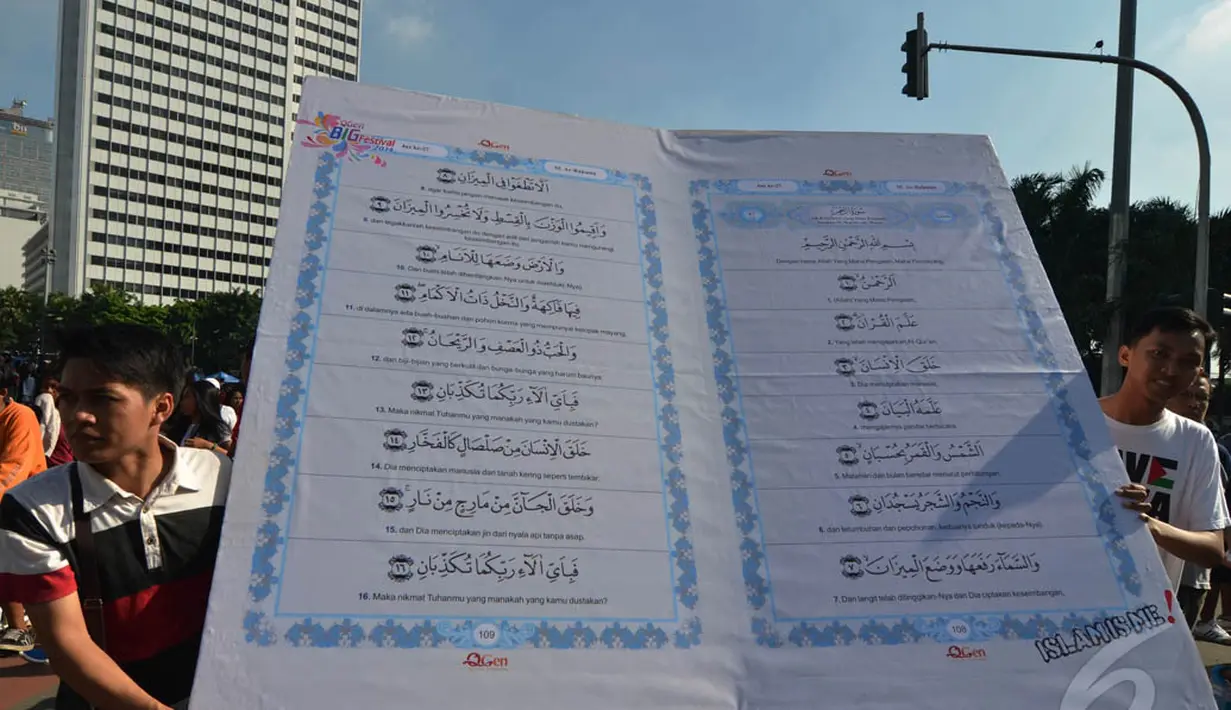 QGen
BIG Festival
2014
Juz ke-27
QGen
55. Ar Rahman
أَلَّا تَطْغَوْا فِي الْمِيزَانِ ٨
8. agar kamu jangan merusak keseimbangan itu,
وَأَقِيمُوا الْوَزْنَ بِالْقِسْطِ وَلَا تُخْسِرُوا الْمِيزَانَ ٩
9. dan tegakkanlah keseimbangan itu dengan adil dan janganlah kamu mengurangi
keseimbangan itu.
وَالْأَرْضَ وَضَعَهَا لِلْأَنَامِ ١٠
10. Dan bumi telah dibentangkan-Nya untuk makhluk(-Nya),
فِيهَا فَاكِهَةٌ وَالنَّخْلُ ذَاتُ الْأَكْمَامِ ١١
11. di dalamnya ada buah-buahan dan pohon kurma yang mempunyai kelopak mayang,
وَالْحَبُّ ذُو الْعَصْفِ وَالرَّيْحَانُ ١٢
12. dan biji-bijian yang berkulit dan bunga-bunga yang harum baunya.
فَبِأَيِّ آلَاءِ رَبِّكُمَا تُكَذِّبَانِ ١٣
13. Maka nikmat Tuhanmu yang manakah yang kamu dustakan?
خَلَقَ الْإِنْسَانَ مِنْ صَلْصَالٍ كَالْفَخَّارِ ١٤
14. Dia menciptakan manusia dari tanah kering seperti tembikar,
وَخَلَقَ الْجَانَّ مِنْ مَارِجٍ مِنْ نَارٍ ١٥
15. dan Dia menciptakan jin dari nyala api tanpa asap.
فَبِأَيِّ آلَاءِ رَبِّكُمَا تُكَذِّبَانِ ١٦
16. Maka nikmat Tuhanmu yang manakah yang kamu dustakan?
109
QGen
QGen
Juz ke-27
55. Ar Rahman
بِسْمِ اللَّهِ الرَّحْمَٰنِ الرَّحِيمِ
Dengan nama Allah Yang Maha Pengasih, Maha Penyayang.
الرَّحْمَٰنُ ١
1. (Allah) Yang Maha Pengasih,
عَلَّمَ الْقُرْآنَ ٢
2. Yang telah mengajarkan Al-Qur'an.
خَلَقَ الْإِنْسَانَ ٣
3. Dia menciptakan manusia,
عَلَّمَهُ الْبَيَانَ ٤
4. mengajarnya pandai berbicara.
الشَّمْسُ وَالْقَمَرُ بِحُسْبَانٍ ٥
5. Matahari dan bulan beredar menurut perhitungan,
وَالنَّجْمُ وَالشَّجَرُ يَسْجُدَانِ ٦
6. dan tetumbuhan dan pepohonan, keduanya tunduk (kepada-Nya).
وَالسَّمَاءَ رَفَعَهَا وَوَضَعَ الْمِيزَانَ ٧
7. Dan langit telah ditinggikan-Nya dan Dia ciptakan keseimbangan,
108
QGen
ISLAM IS ME!
6